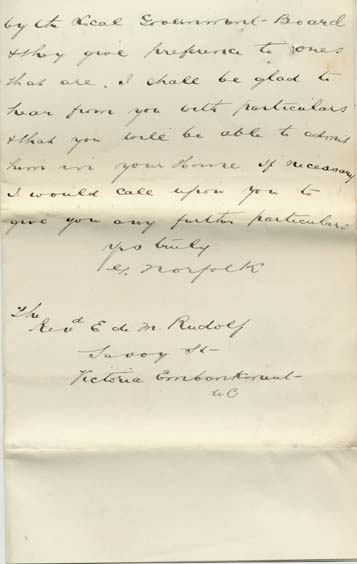 by the Local Government Board
& they give preference to ones
that are. I shall be glad to
hear from you with particulars
& that you will be able to admit
him in your Home. If necessary
I would call upon you to
give you any further particulars
yrs truly
G. Norfolk
The
Revd E. de M. Rudolf
Savoy St
Victoria Embankment
WC